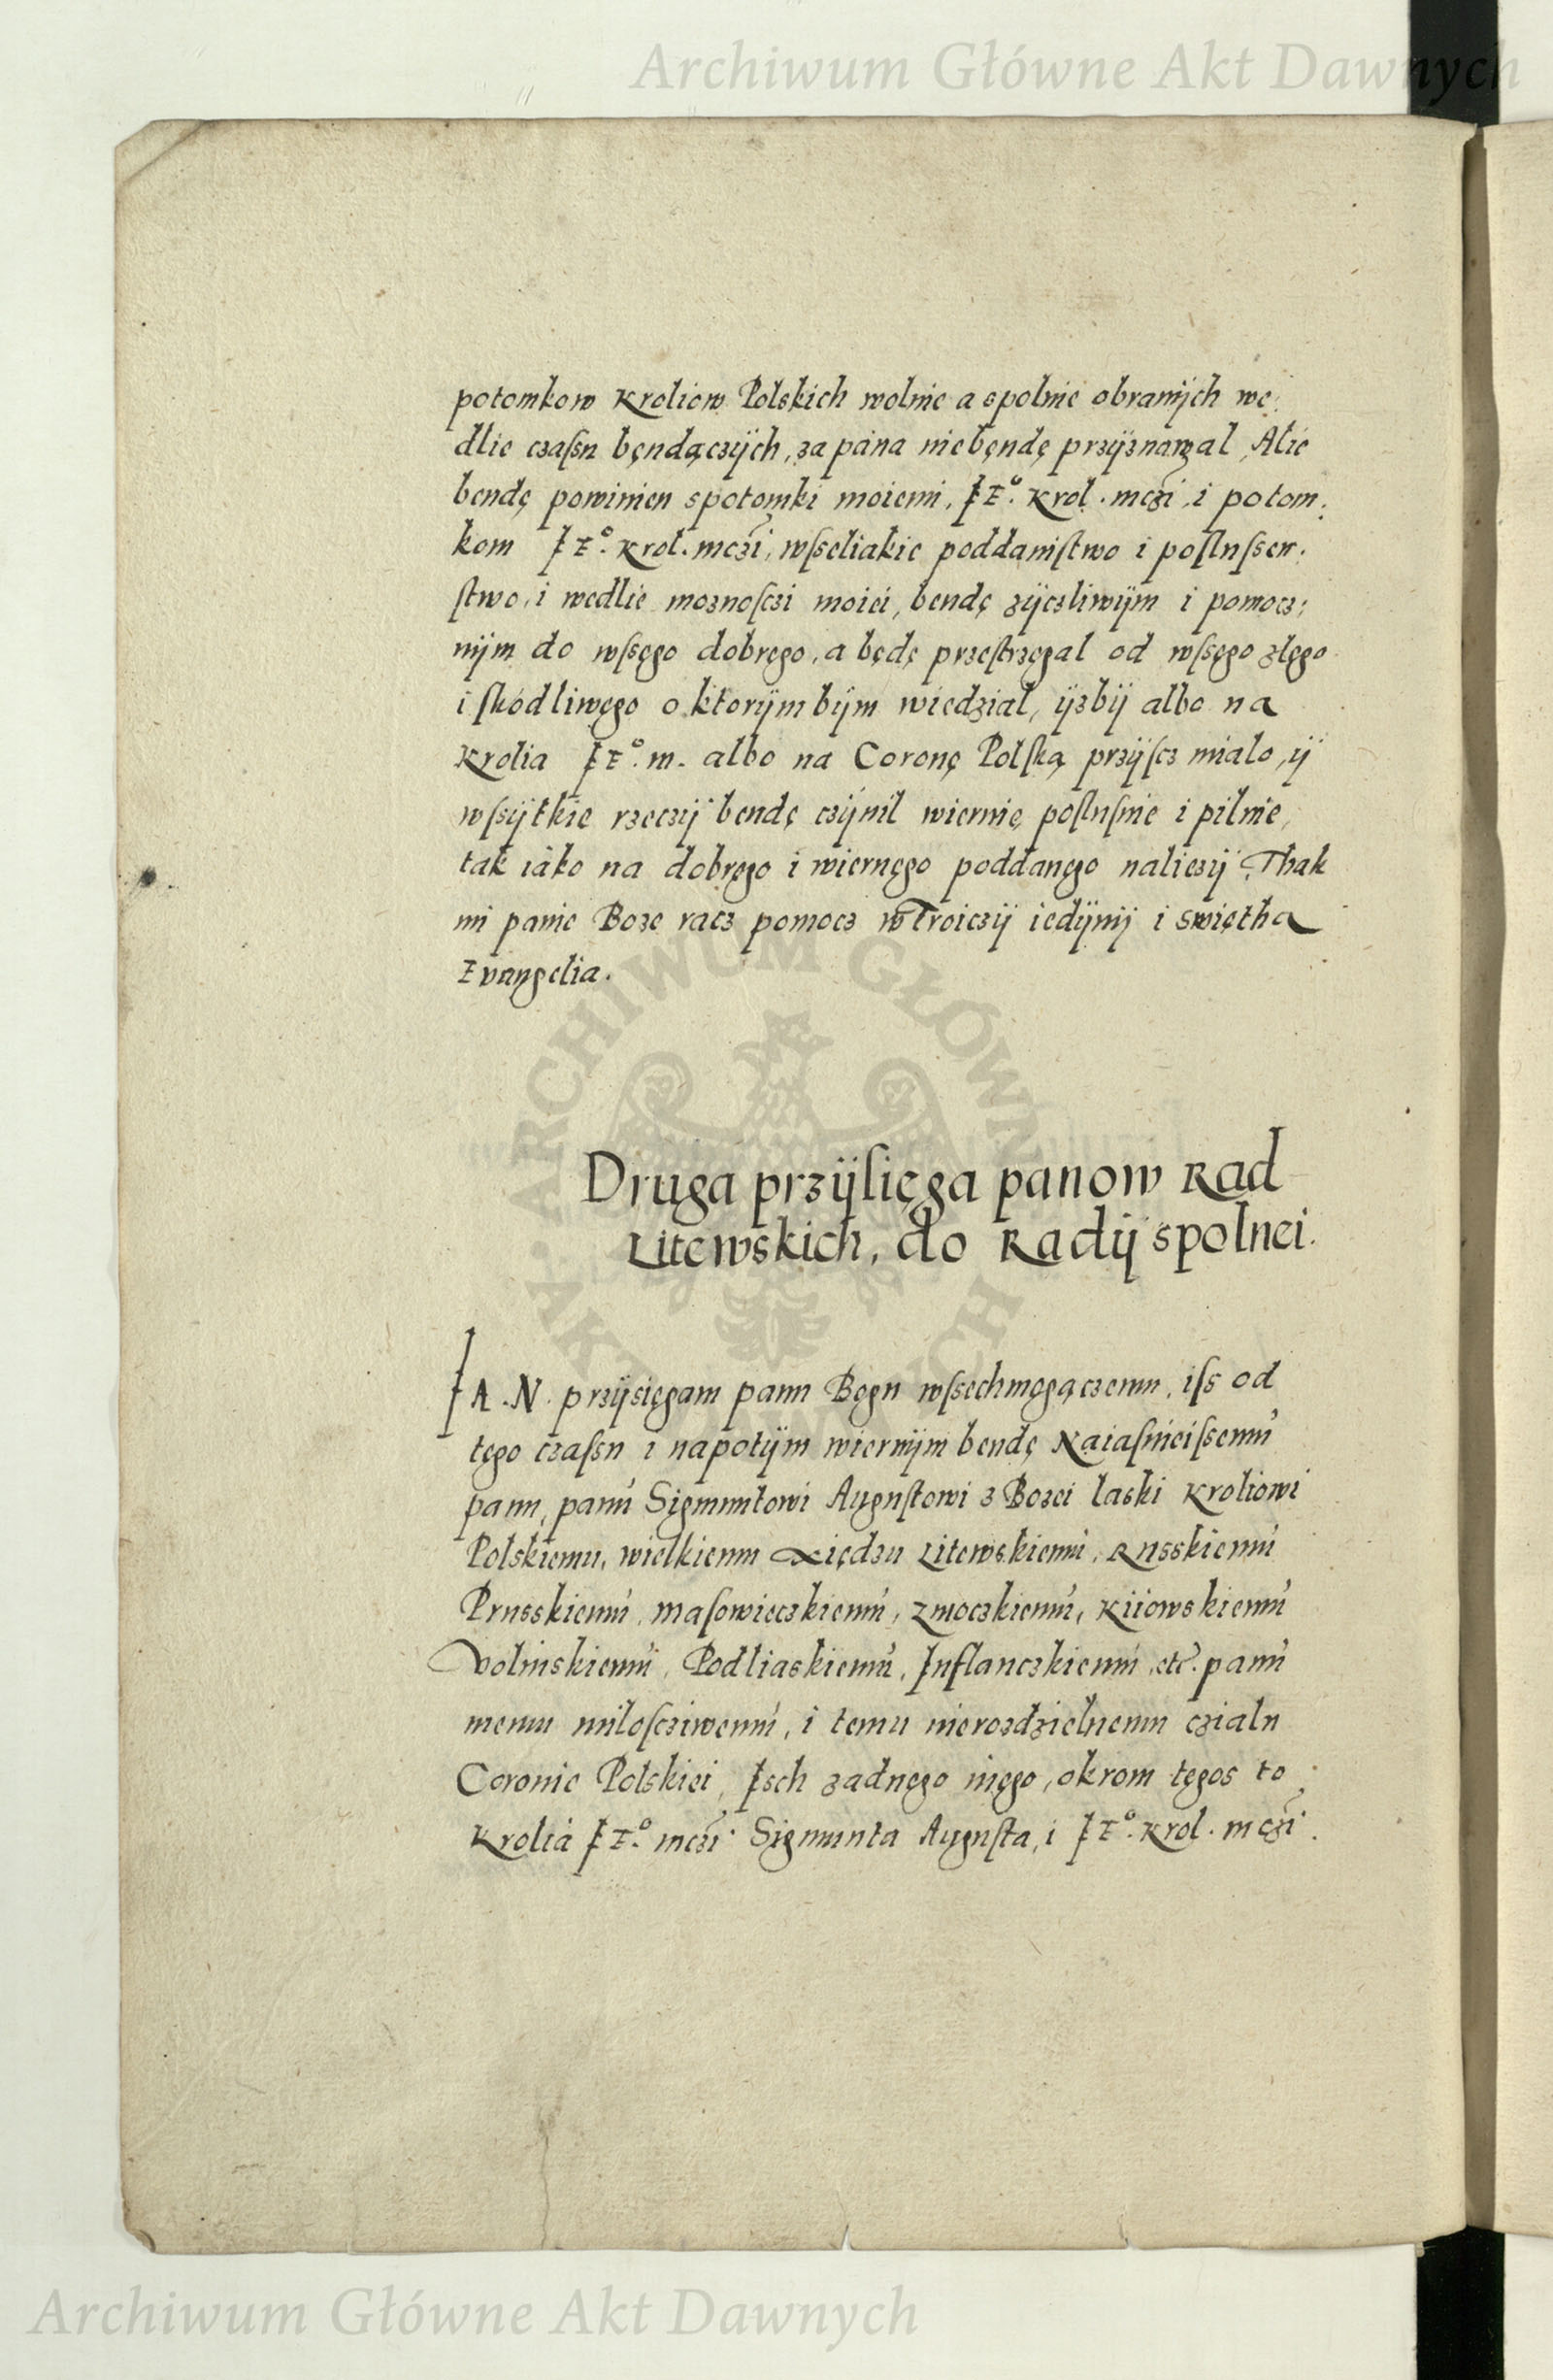 Archiwum Główne Akt Dawnych
potomkow Kroliow Polskich wolnie a spolnie obranÿch we:
dlie czaſsu bęndączÿch, za pana niebęndę przÿznawal, Alie
bendę powinien spotomki moiemi, IE°. Krol. mczi, i potom:
kom IE°. Krol. mczi, wſseliakie poddaniſtwo i poſluſsen:
ſtwo, i wedlie moznoſczi moiei, bendę zÿczliwÿm i pomocz:
nÿm do wſsęgo dobręgo, a będę przeſtrzęgal od wſsęgo zlęgo
i ſkodliwęgo o ktorÿm bÿm wiedzial, ÿzbÿ albo na
Krolia IE°. m. albo na Coronę Polſką przÿſcz mialo, ÿ
wſsÿtkie rzeczÿ bendę czÿnil wiernie, poſluſnie i pilnie,
tak iako na dobręgo i wiernęgo poddanęgo naliezÿ, Thak
mi panie Boze racz pomocz w Troiczÿ iedÿnÿ i swiętha
Evangelia.
ARCHIWUM GŁÓWNE AKT DAWNYCH
Druga przÿsięga panow Rad
Litewskich, do Radÿ spolnei.
IA .N. przÿsięgam panu Bogu wſsechmogączemu, iſs od
tęgo czaſsu i napotÿm wiernÿm bendę Naiaſnieiſsemu
panu, panu Sigmuntowi Auguſtowi z Bozei laski Kroliowi
Polskiemu, wielkiemu Xiędzu Litewskiemu, Russkiemu
Prusskiemu, Maſowieczkiemu, Zmoczkiemu, Kiiowskiemu
Volinskiemu, Podliaskiemu, Inflanczkiemu, etc. panu
memu miloſcziwemu, i temu nierozdzielnemu czialu
Coronie Polskiei, Isch zadnęgo inęgo, okrom tęgos to
Krolia IE°. mczi Sigmunta Auguſta, i IE°. Krol. mczi.
Archiwum Główne Akt Dawnych